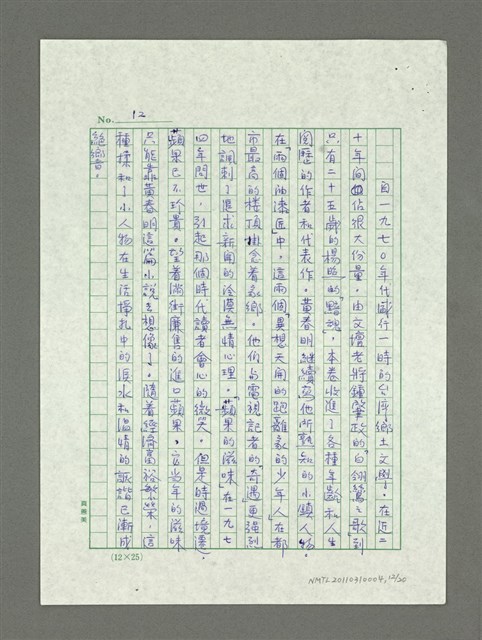 No. 12
自一九七〇年代盛行一時的台灣鄉土文學，在近二
十年間佔很大份量。由文壇老將鍾肇政的「白翎鷥之歌」到
只有二十五歲的楊照的「黯魂」，本卷收進了各種年齡和人生
閱歷的作者和代表作。黃春明繼續為他所熟知的小鎮人物。
在「兩個油漆匠」中，這兩個異想天開的跑離家的少年人在都
市最高的樓頂掛念着家鄉。他們與電視記者的奇遇更強烈
地諷刺了追求新聞的冷漠無情心理。「蘋果的滋味」在一九七
四年問世，引起那個時代讀者會心的微笑。但是時過境遷，
蘋果已不珍貴。望着滿街廉售的進口蘋果，它當年的滋味
只能靠黃春明這篇小說去想像了。隨着經濟富裕繁榮，這
種種和了小人物在生活掙扎中的淚水和溫情的詼諧已漸成
絕響。
(12×25)
NMTL20110310004, 12/20